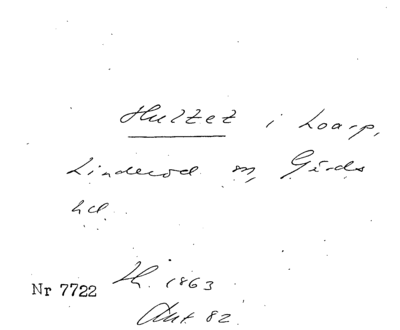 Hultet i Loarp,
Linderöd sn, Gärds
hd.
Nr 7722 Th. 1863
Ant. 82.